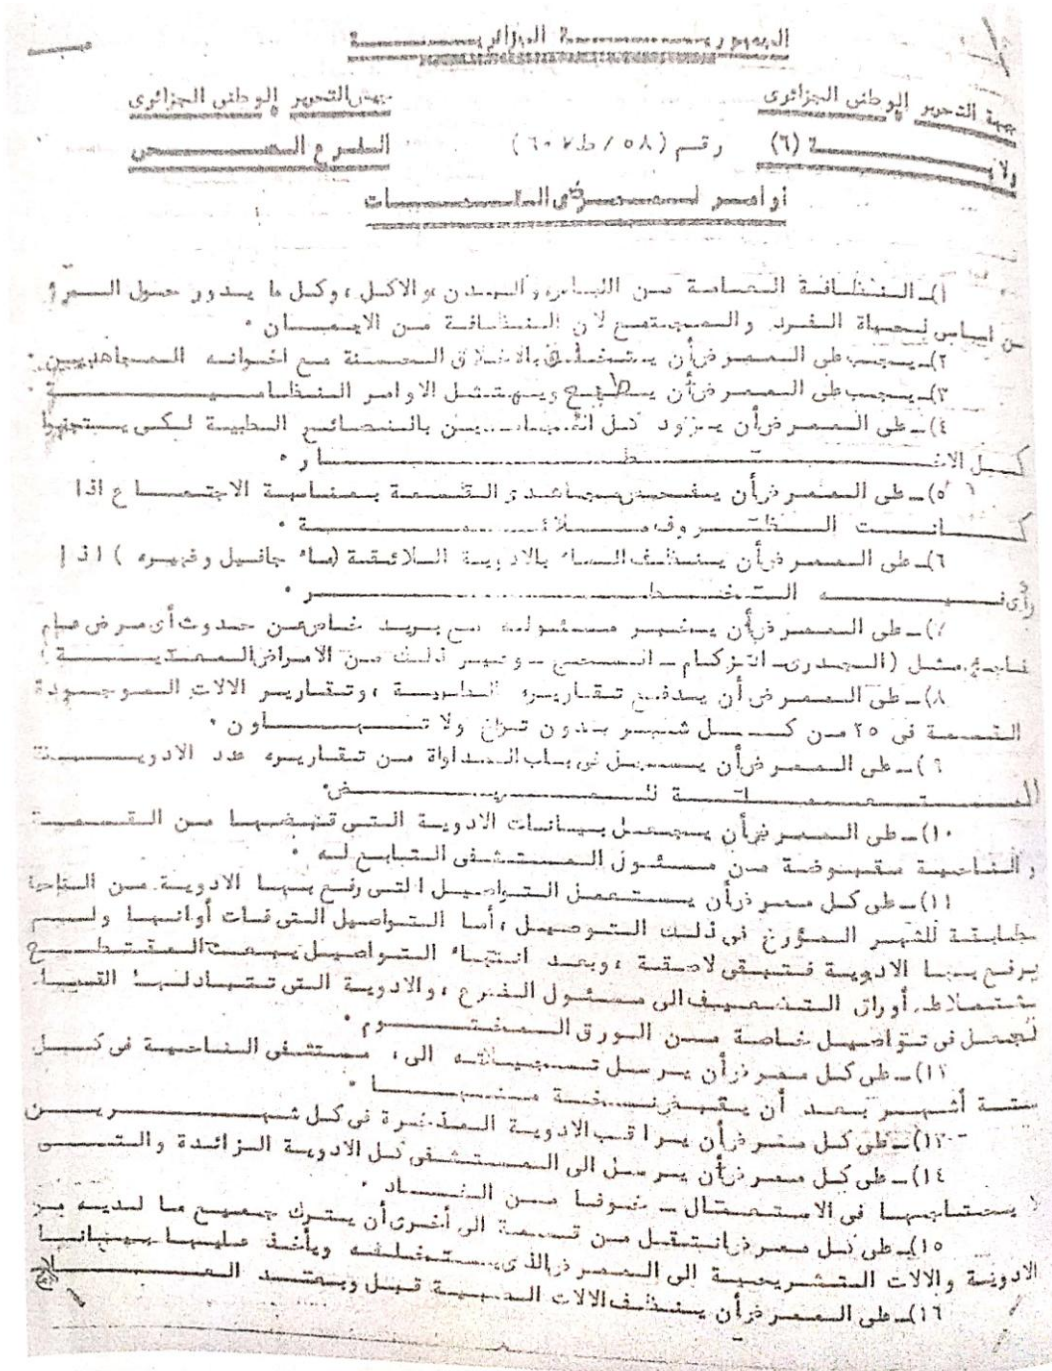 الجمهورية الجزائرية
جبهة التحرير الوطني الجزائري
جيش التحرير الوطني الجزائري
ولاية (٦) رقم (٥٨/ط٦٠٧) الفرع الصحي
أوامر لممرضي القسمات
١)ـ النظافة العامة من اللباس، والبدن، والاكل، وكل ما يدور حول المرء
من اساس لحياة الفرد والمجتمع لان النظافة من الايمان .
٢)ـ يجب على الممرض أن يتخلق بالاخلاق الحسنة مع اخوانه المجاهدين .
٣)ـ يجب على الممرض أن يطيع ويمتثل الاوامر النظامية .
٤)ـ على الممرض أن يزود كل بالنصائح الطبية لكي يستجنبوا
كل الاخطار .
٥)ـ على الممرض أن يفحص مجاهدي القسمة بمناسبة الاجتماع اذا
كانت الظروف ملائمة .
٦)ـ على الممرض أن ينظف الماء بالادوية اللائقة (ماء جافيل وغيره ) اذا
رأى فيه الخطر .
٧)ـ على الممرض أن يخبر مسئوله مع بريد خاص عن حدوث أي مرض عام
فاجع مثل (الجدري ـ الزكام ـ ـ وغير ذلك من الامراض المعدية )
٨)ـ على الممرض أن يدفع تقاريره الطبية ، وتقارير الالات الموجودة
القسمة في ٢٥ من كل شهر بدون تراخ ولا تهاون .
٩)ـ على الممرض أن يسجل في باب المداواة من تقاريره عدد الادوية
المستعملة للمريض.
١٠)ـ على الممرض أن يجعل بيانات الادوية التي قبضها من القسمة
والناحية مقبوضة من مسئول المستشفى التابع له .
١١)ـ على كل ممرض أن يستعمل التواصيل التي رفع بها الادوية من الناحية
مطابقة للشهر المؤرخ في ذلك التوصيل ، أما التواصيل التي فات أوانها ولم
يرفع بها الادوية فتبقى لاصقة ، وبعد انتهاء التواصيل يبعث المقتطع
أوراق الى مسئول الفرع ، والادوية التي تتبادلها القسمات
تجعل في تواصيل خاصة من الورق المختوم .
١٢)ـ على كل ممرض أن يرسل الى، مستشفى الناحية في كل
ستة أشهر بعد أن يقبض نسخة منها .
١٣)ـ على كل ممرض أن يراقب الادوية المذخرة في كل شهرين
١٤)ـ على كل ممرض أن يرسل الى المستشفى كل الادوية الزائدة والتي
لا يحتاجها في الاستعمال ـ خوفا من الفساد .
١٥)ـ على كل ممرض انتقل من قسمة الى أخرى أن يترك جميع ما لديه من
الادوية والالات التشريحية الى الممرض الذي يستخلفه ويأخذ عليها بيانا
١٦)ـ على الممرض أن ينظف الالات الطبية قبل وبعد العلاج